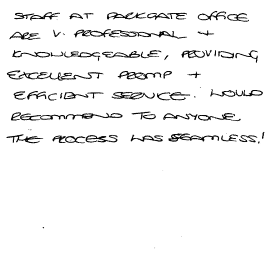 STAFF AT PARKGATE OFFICE
ARE V. PROFESSIONAL +
KNOWLEDGEABLE, PROVIDING
EXCELLENT PROMP +
EFFICIENT SERVICE. WOULD
RECOMMEND TO ANYONE
THE PROCESS WAS SEAMLESS!